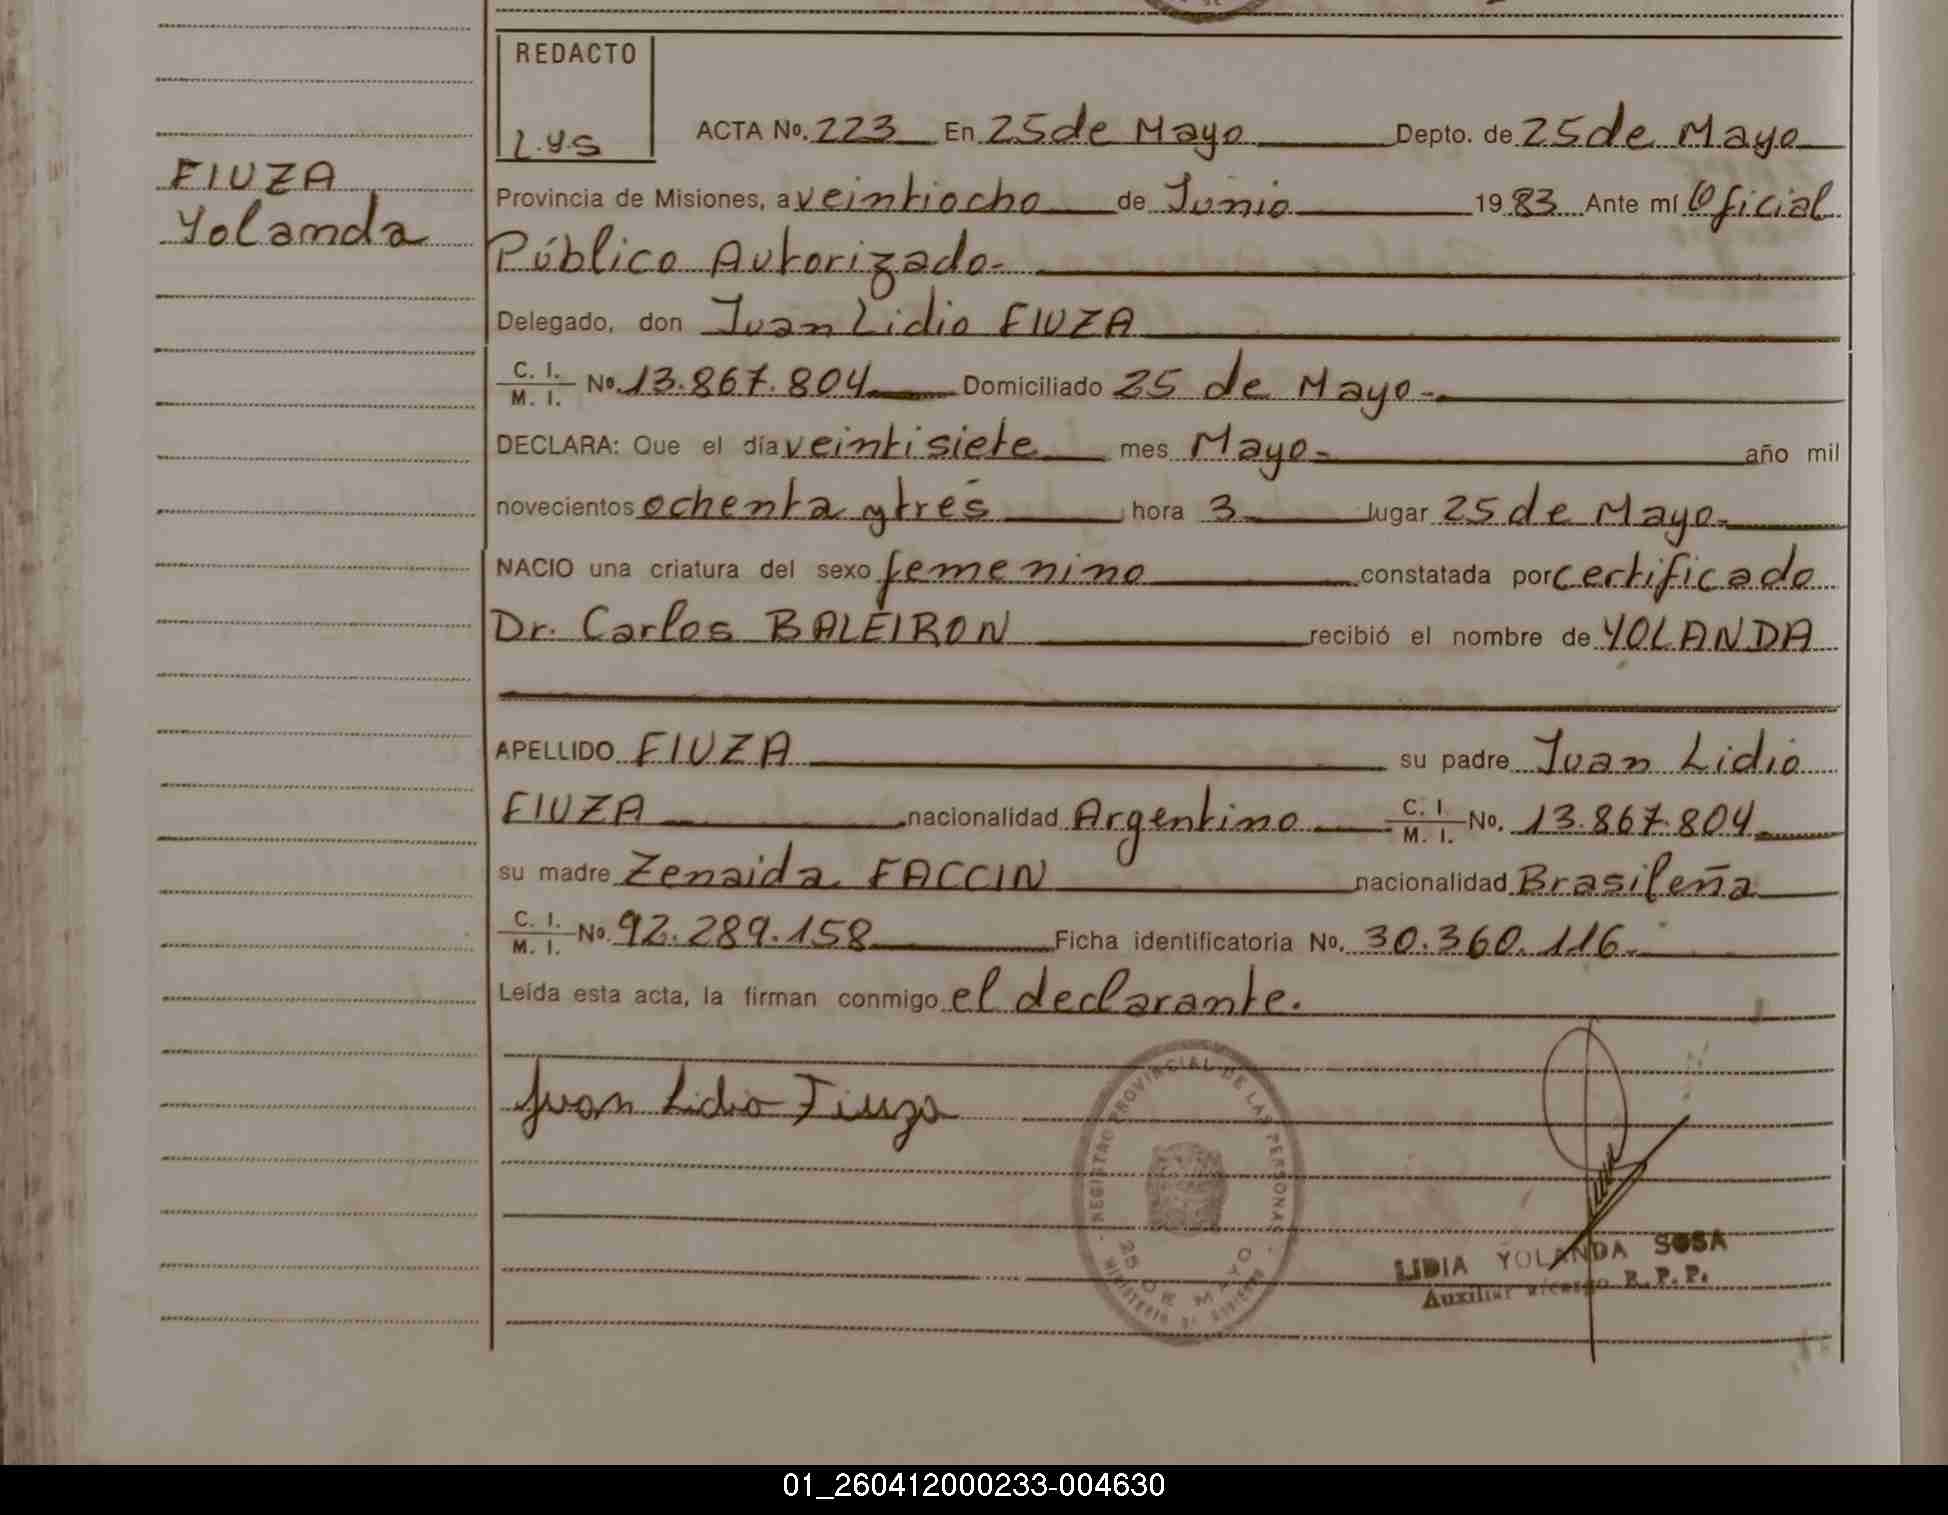 REDACTO
L.Y.S
ACTA No. 223 En 25 de Mayo Depto. de 25 de Mayo
FIUZA
Yolanda
Provincia de Misiones, a veintiocho de Junio 1983 Ante mí Oficial
Público Autorizado.
Delegado, don Juan Lidio FIUZA
C. I.
M. I. No. 13.867.804 Domiciliado 25 de Mayo.
DECLARA: Que el día veintisiete mes Mayo. año mil
novecientos ochenta y tres hora 3 lugar 25 de Mayo.
NACIO una criatura del sexo femenino constatada por certificado
Dr. Carlos BALEIRON recibió el nombre de YOLANDA
APELLIDO FIUZA su padre Juan Lidio
FIUZA nacionalidad Argentino C. I. M. I. No. 13.867.804
su madre Zenaida FACCIN nacionalidad Brasileña
C. I.
M. I. No. 92.289.158 Ficha identificatoria No. 30.360.116.
Leída esta acta, la firman conmigo el declarante.
Juan Lidio Fiuza
REGISTRO PROVINCIAL DE LAS PERSONAS
25 DE MAYO
MINISTERIO DE GOBIERNO
LIDIA YOLANDA SOSA
Auxiliar a/cargo R. P. P.
01_260412000233-004630